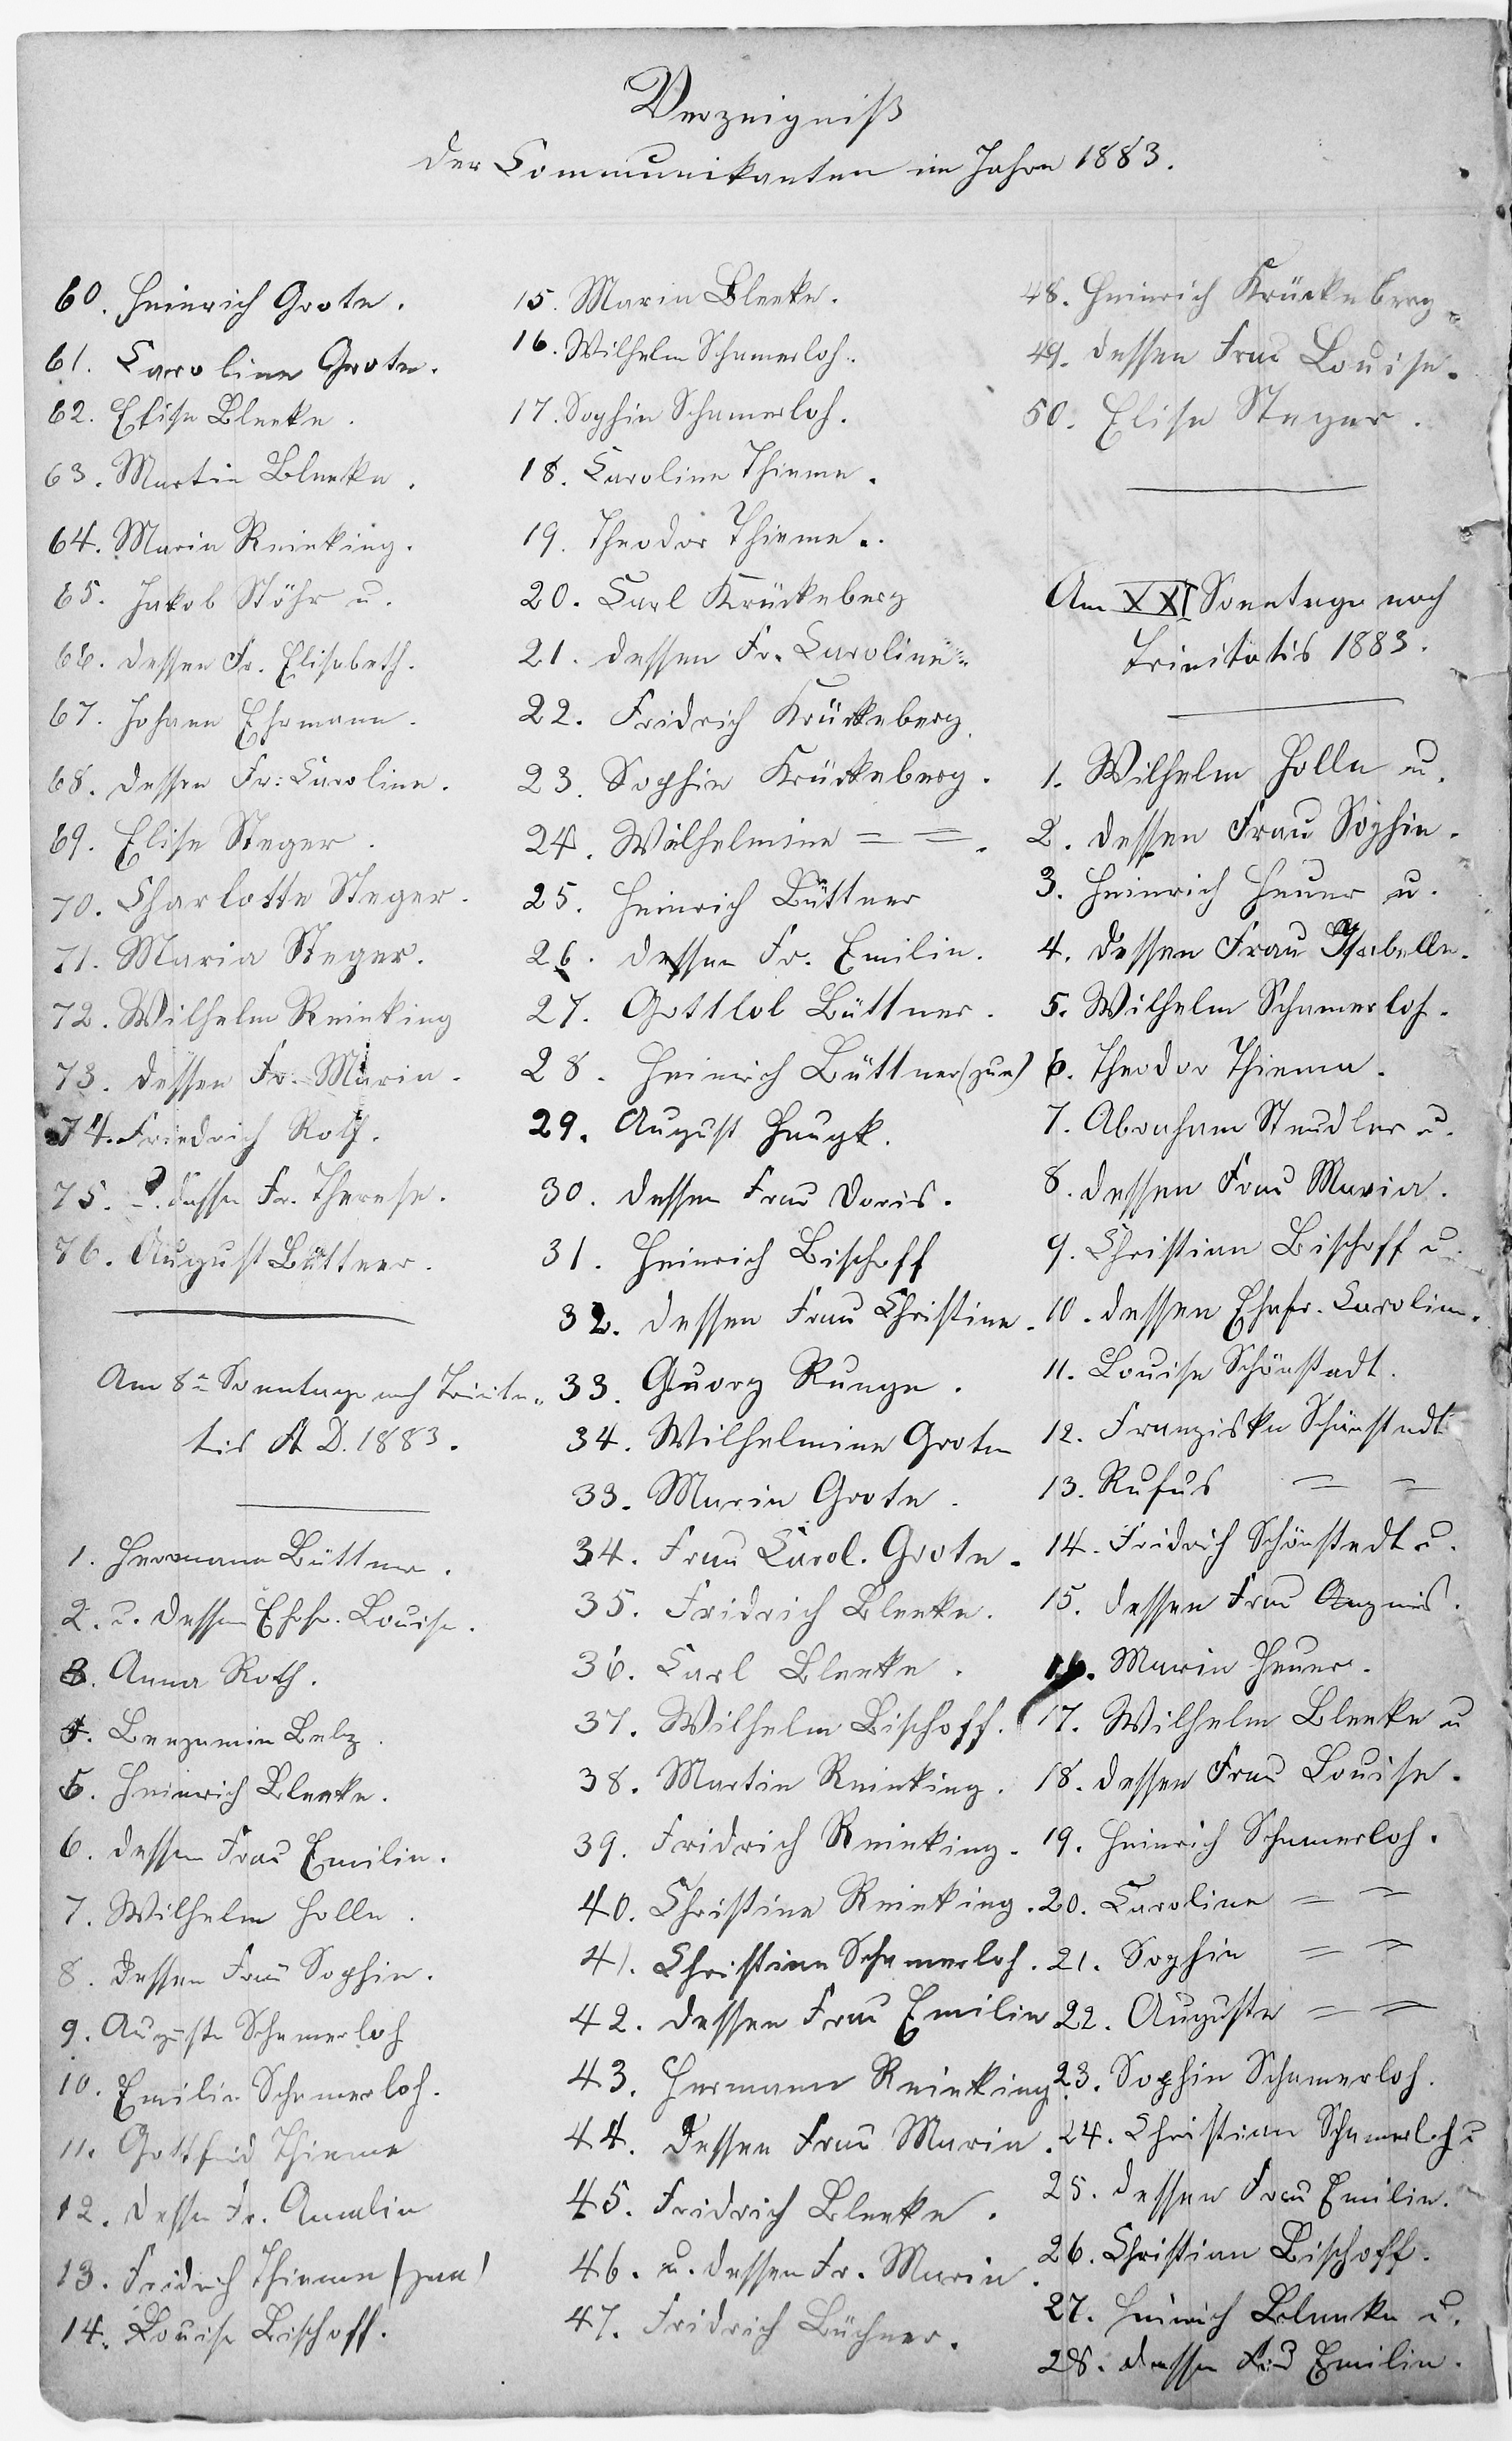 Verzeigniß
der Communikanten im Jahre 1883.
60. Heinrich Grote.
61. Caroline Grote.
62. Elise Bleeke.
63. Martin Bleeke.
64. Marie Reinking.
65. Jakob Stöhr u.
66. dessen Fr. Elisabeth.
67. Johann Ehrmann.
68. dessen Fr: Caroline.
69. Elise Steger.
70. Charlotte Steger.
71. Maria Steger.
72. Wilhelm Reinking
73. dessen Fr. Marie.
74. Friedrich Roth.
75. dessen Fr. Therese.
76. August Büttner.
Am 8ⁿ Sonntage nach Trinita-
tis A D. 1883.
1. Hermann Büttner.
2. u. dessen Ehefr. Louise.
3. Anna Roth.
4. Benjamin Belz.
5. Heinrich Bleeke.
6. dessen Frau Emilie.
7. Wilhelm Holle.
8. dessen Frau Sophie.
9. Auguste Schamerloh
10. Emilie Schamerloh.
11. Gottfrid Thieme
12. dessen Fr. Amalie
13. Fridrich Thieme (jun)
14. Louise Bischoff.
15. Marie Bleeke.
16. Wilhelm Schamerloh.
17. Sophie Schamerloh.
18. Caroline Thieme.
19. Theodor Thieme.
20. Carl Krückeberg
21. dessen Fr. Caroline.
22. Fridrich Krückeberg.
23. Sophie Krückeberg.
24. Wilhelmine = = .
25. Heinrich Büttner
26. dessen Fr. Emilie.
27. Gottlob Büttner.
28. Heinrich Büttner (jun)
29. August Haugk.
30. dessen Frau Doris.
31. Heinrich Bischoff
32. dessen Frau Christine.
33. Georg Runge.
34. Wilhelmine Grote
33. Marie Grote.
34. Frau Carol. Grote.
35. Fridrich Bleeke.
36. Carl Bleeke.
37. Wilhelm Bischoff.
38. Martin Reinking.
39. Fridrich Reinking.
40. Christine Reinking.
41. Christian Schamerloh.
42. dessen Frau Emilie
43. Hermann Reinking
44. dessen Frau Marie.
45. Fridrich Bleeke.
46. u. dessen Fr. Marie.
47. Fridrich Büchner.
48. Heinrich Krückeberg
49. dessen Frau Louise.
50. Elise Steger.
Am XXI Sonntage nach
Trinitatis 1883.
1. Wilhelm Holle u.
2. dessen Frau Sophie.
3. Heinrich Heuer u.
4. dessen Frau Isabelle.
5. Wilhelm Schamerloh.
6. Theodor Thieme.
7. Abraham Steudler u.
8. dessen Frau Maria.
9. Christian Bischoff u.
10. dessen Ehefr. Caroline.
11. Louise Schönstadt.
12. Franziska Schönstedt
13. Rufus = =
14. Fridrich Schönstedt u.
15. dessen Frau Angnes.
16. Marie Heuer.
17. Wilhelm Bleeke u
18. dessen Frau Louise.
19. Heinrich Schamerloh.
20. Caroline = =
21. Sophie = =
22. Auguste = =
23. Sophie Schamerloh.
24. Christian Schamerloh u
25. dessen Frau Emilie.
26. Christian Bischoff.
27. Heinrich Bleeke u.
28. dessen Frau Emilie.